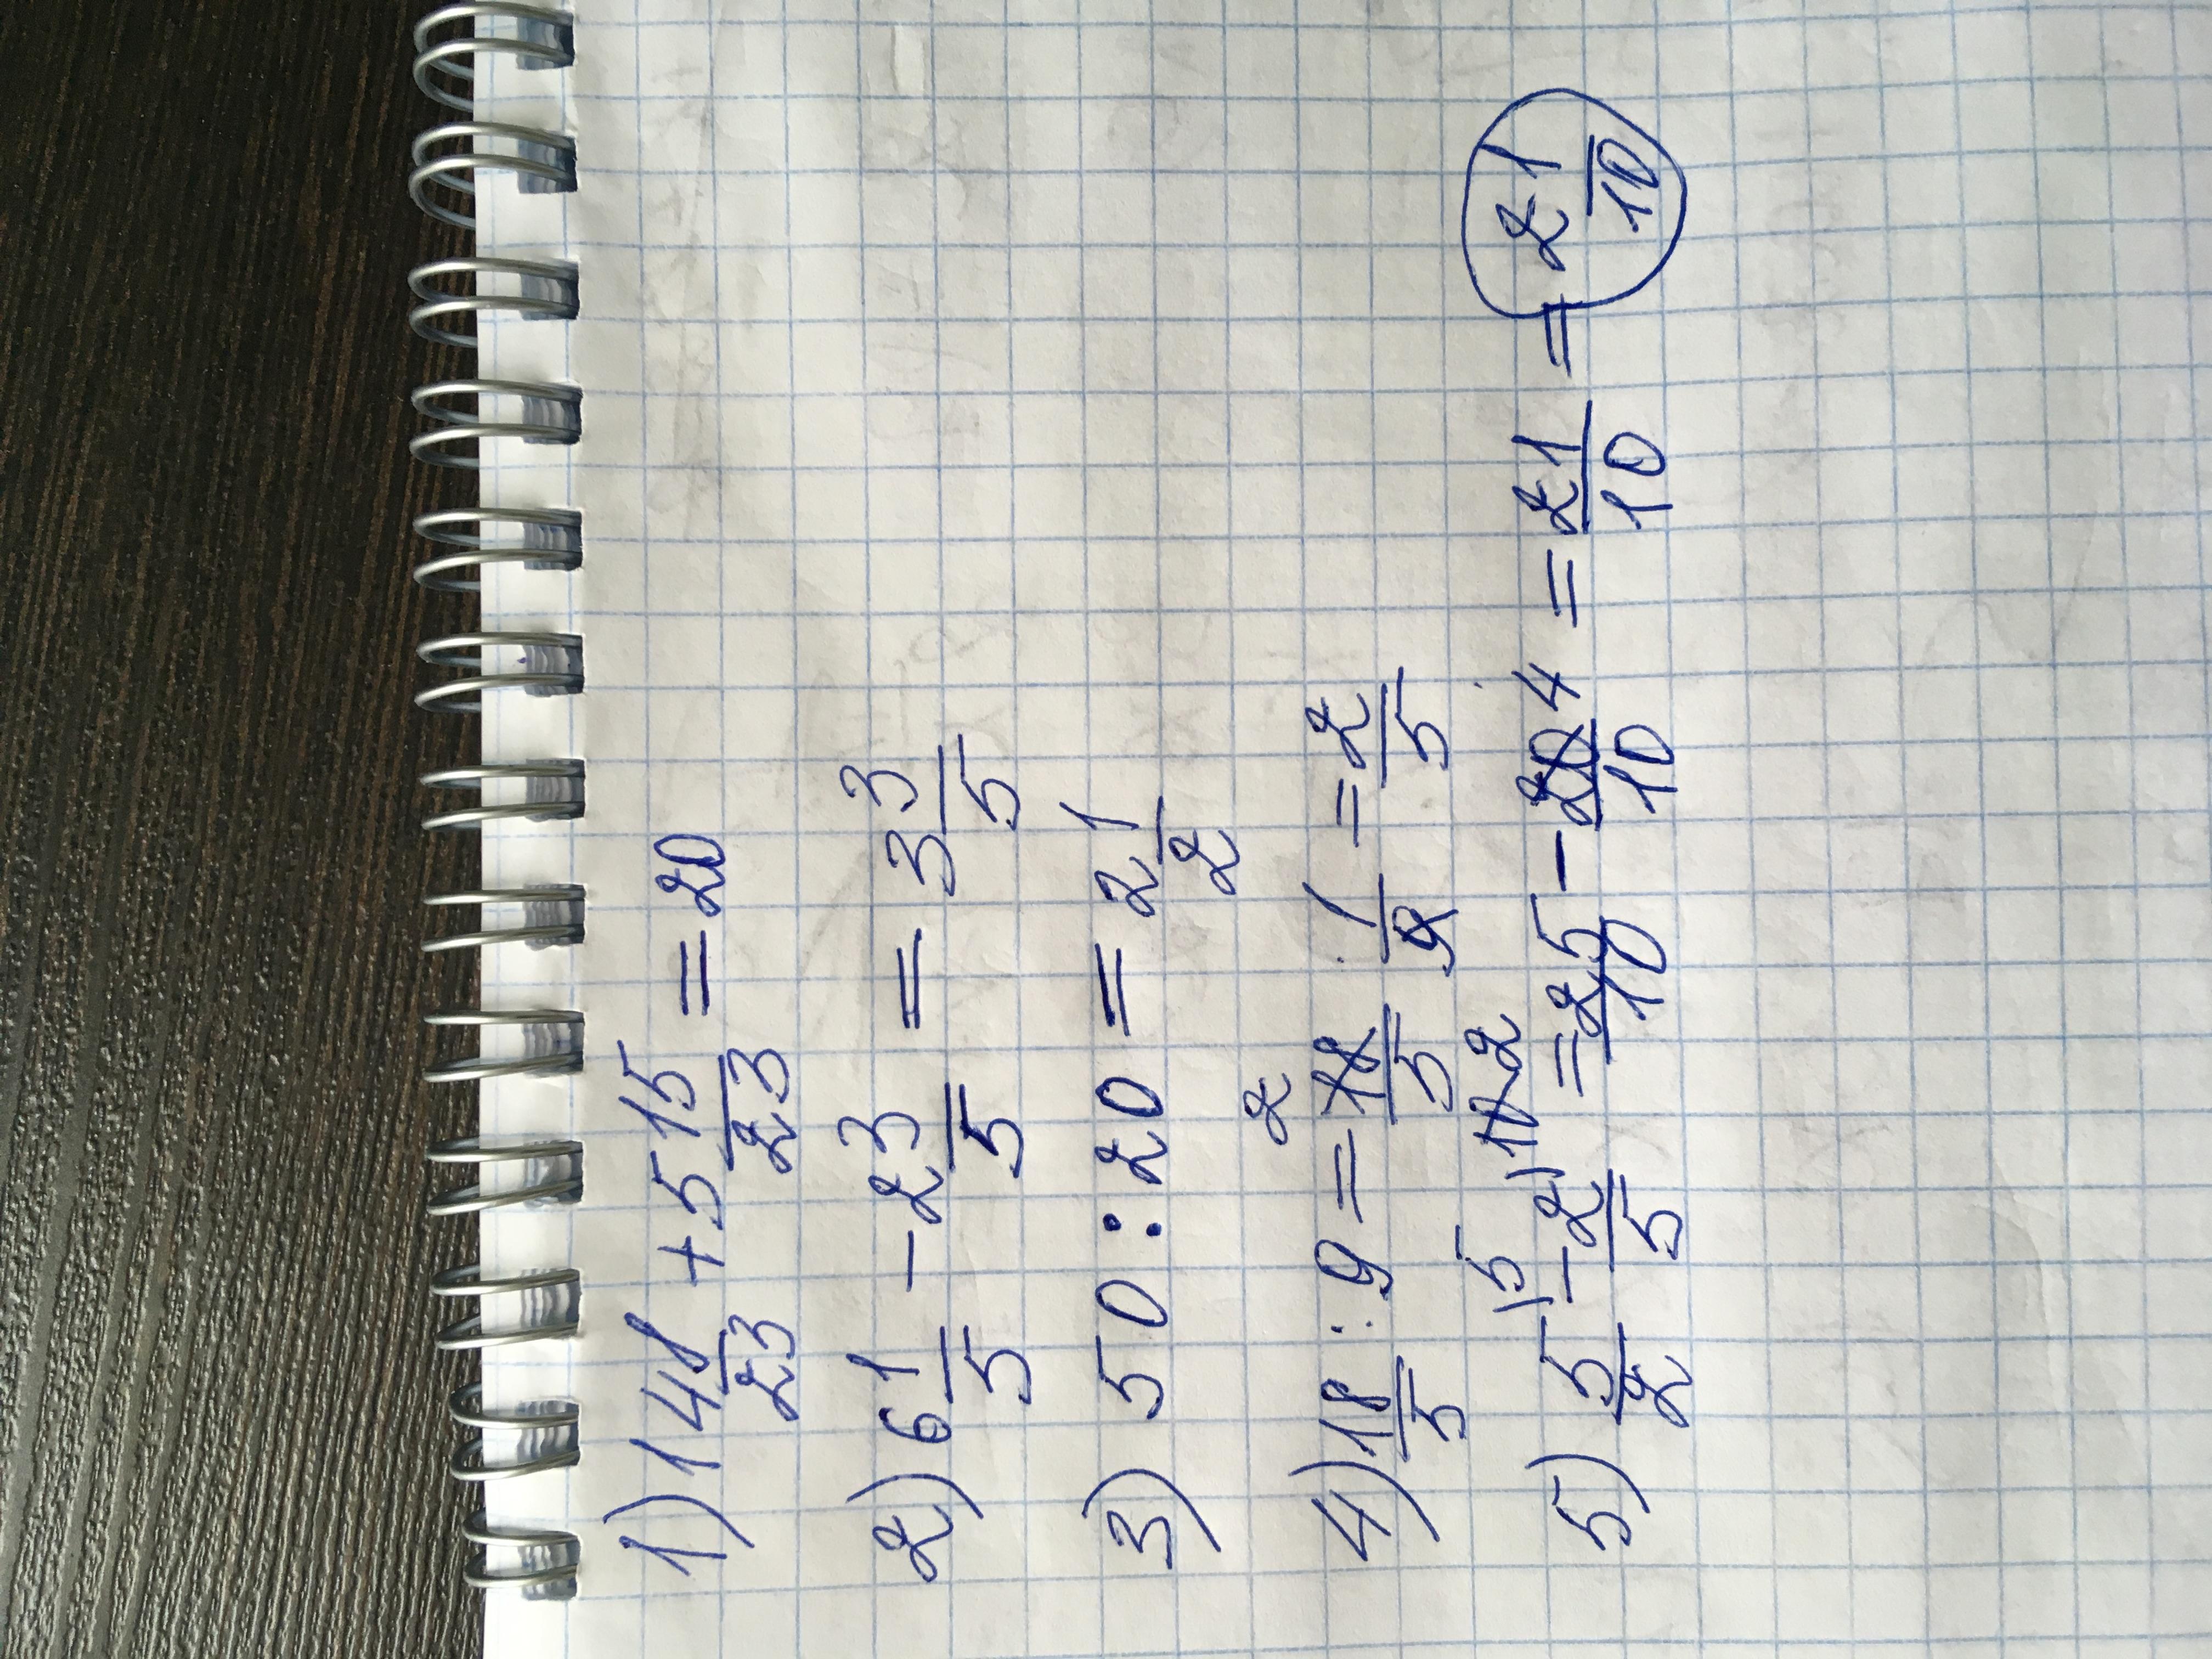 1) 14 8/23 + 5 15/23 = 20
2) 6 1/5 - 2 3/5 = 3 3/5
3) 50 : 20 = 2 1/2
4) 18/5 : 9 = 18/5 · 1/9 = 2/5
2
5) 5/2 - 2/5 = 25/10 - 4/10 = 21/10 = 2 1/10